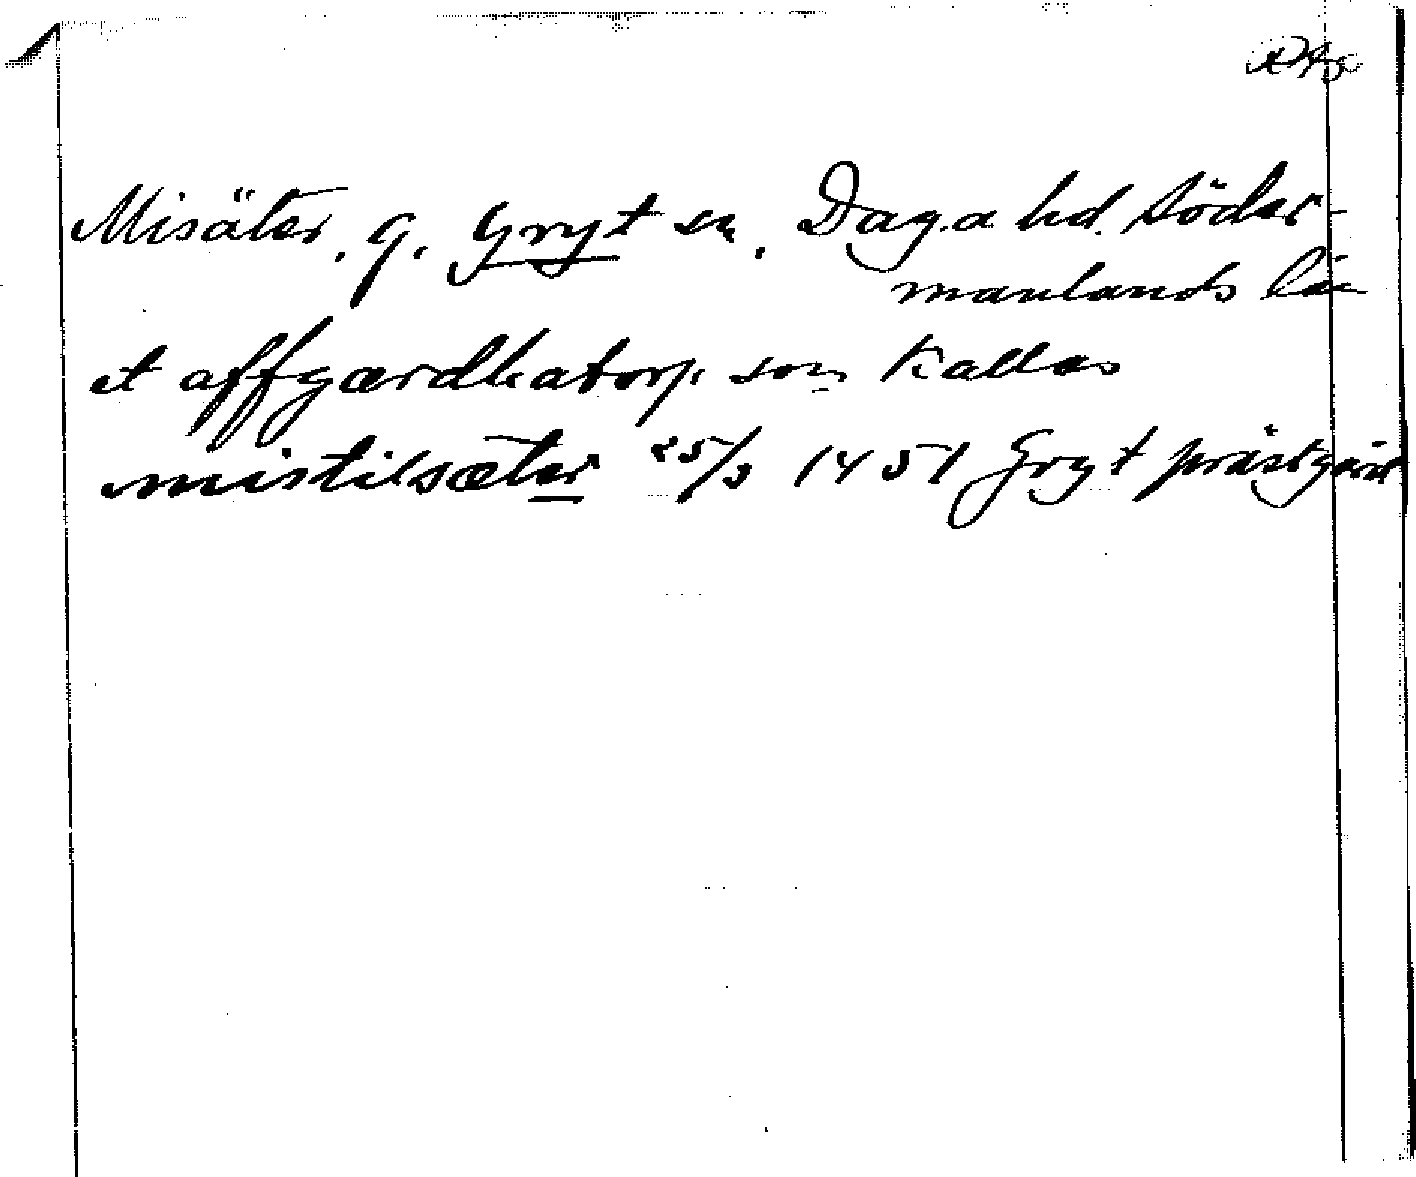 Misäter. g. Gryt sn. Daga hd. Söder-
manlands län
et affgærdhatorp som kallas
mistilsæter 25/3 1451 Gryt prästgård